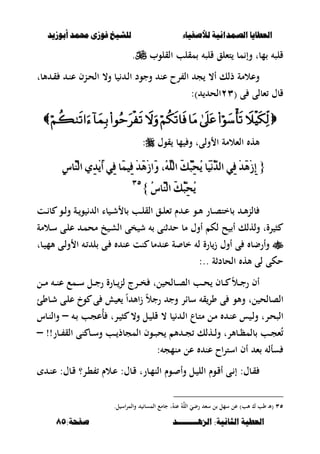 العطايا الصمدانية للأصفياء للشيخ فوزى محمد أبوزيد
قلبه بها، وإنما يتعلق قلبه بمقلب القلوب ﷺ.
وعلامة ذلك ألا يجد الفرح عند وجود الدنيا ولا الحزن عند فقدها،
قال تعالى فى (٢٣الحديد):
﴿لِّكَيْلَا تَأْسَوْا۟ عَلَىٰ مَا فَاتَكُمْ وَلَا تَفْرَحُوا۟ بِمَآ ءَاتَىٰكُمْ﴾
هذه العلامة الأولى، وفيها يقول ﷺ:
{ إِزْهَدْ فِي الدُّنْيَا يُحِبُّكَ اللَّهُ، وَازْهَدْ فِيمَا فِي أَيْدِي النَّاسِ
يُحِبُّكَ النَّاسُ } ٣٥
فالزهد باختصار هو عدم تعلق القلب بالأشياء الدنيوية ولو كانت
كثيرة، ولذلك أبيح لكم أول ما حدثنى به شيخى الشيخ محمد على سلامة
وأرضاه فى أول زيارة له خاصة عندما كنت عنده فى بلدته الأولى ههيا،
حكى لى هذه الحادثة ..:
أن رجلاً كان يحب الصالحين، فخرج لزيارة رجل سمع عنه من
الصالحين، وهو فى طريقه سائر وجد رجلاً زاهداً يعيش فى كوخ على شاطئ
البحر، وليس عنده من متاع الدنيا لا قليل ولا كثير، فأُعجب به – والناس
تُعجب بالمظاهر، ولذلك تجدهم يحبون المجاذيب وساكنى القفار!! –
فسأله بعد أن استراح عنده عن منهجه:
فقال: إنى أقوم الليل وأصوم النهار، قال: علام تفطر؟ قال: عندى
٣٥ (هـ طب ك هب) عن سهل بن سعد رضيَ اللَّهُ عنهُ، جامع المسانيد والمراسيل.
العطية الثانية: الزهـــــد صفحة:٨٥